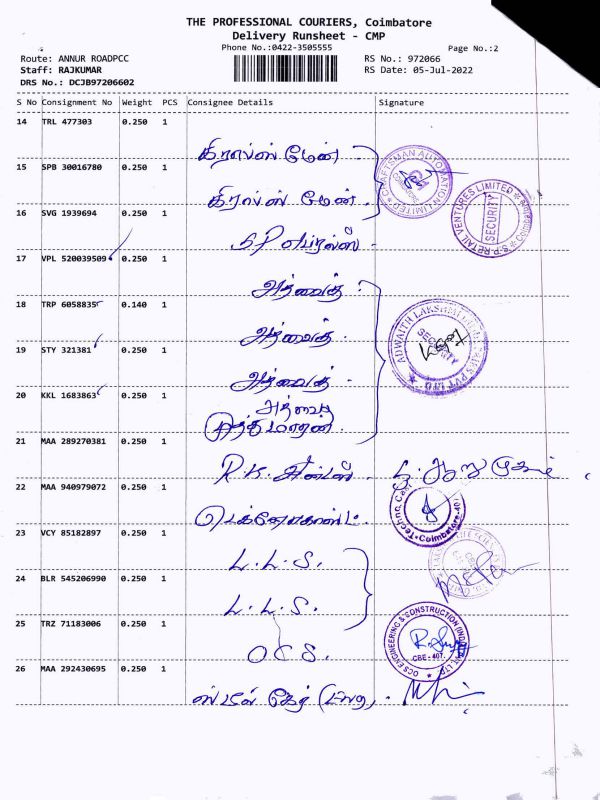 THE PROFESSIONAL COURIERS, Coimbatore
Delivery Runsheet - CMP
Phone No.:0422-3505555
Page No.:2
Route: ANNUR ROADPCC
RS No.: 972066
Staff: RAJKUMAR
RS Date: 05-Jul-2022
DRS No.: DCJB97206602
S No Consignment No Weight PCS Consignee Details Signature
14 TRL 477303 0.250 1
கிராப்ஸ் மேன்
CRAFTSMAN AUTOMATION LIMITED
15 SPB 30016780 0.250 1
கிராப்ஸ் மேன்
S.P. RETAIL VENTURES LIMITED
SECURITY
16 SVG 1939694 0.250 1
17 VPL 520039509 0.250 1
அத்வைத்
18 TRP 6058835 0.140 1
அத்வைத்
ADWAITH LAKSHMI
SECURITY
PVT LTD
19 STY 321381 0.250 1
அத்வைத்
20 KKL 1683863 0.250 1
அத்வைத்
முத்துமாறன்
21 MAA 289270381 0.250 1
R.K.
22 MAA 940979072 0.250 1
Techno
Coimbatore-
23 VCY 85182897 0.250 1
L.L.S.
24 BLR 545206990 0.250 1
L.L.S.
25 TRZ 71183006 0.250 1
OCS.
OCS ENGINEERING & CONSTRUCTION (INDIA) PVT. LTD.
CBE-407.
26 MAA 292430695 0.250 1